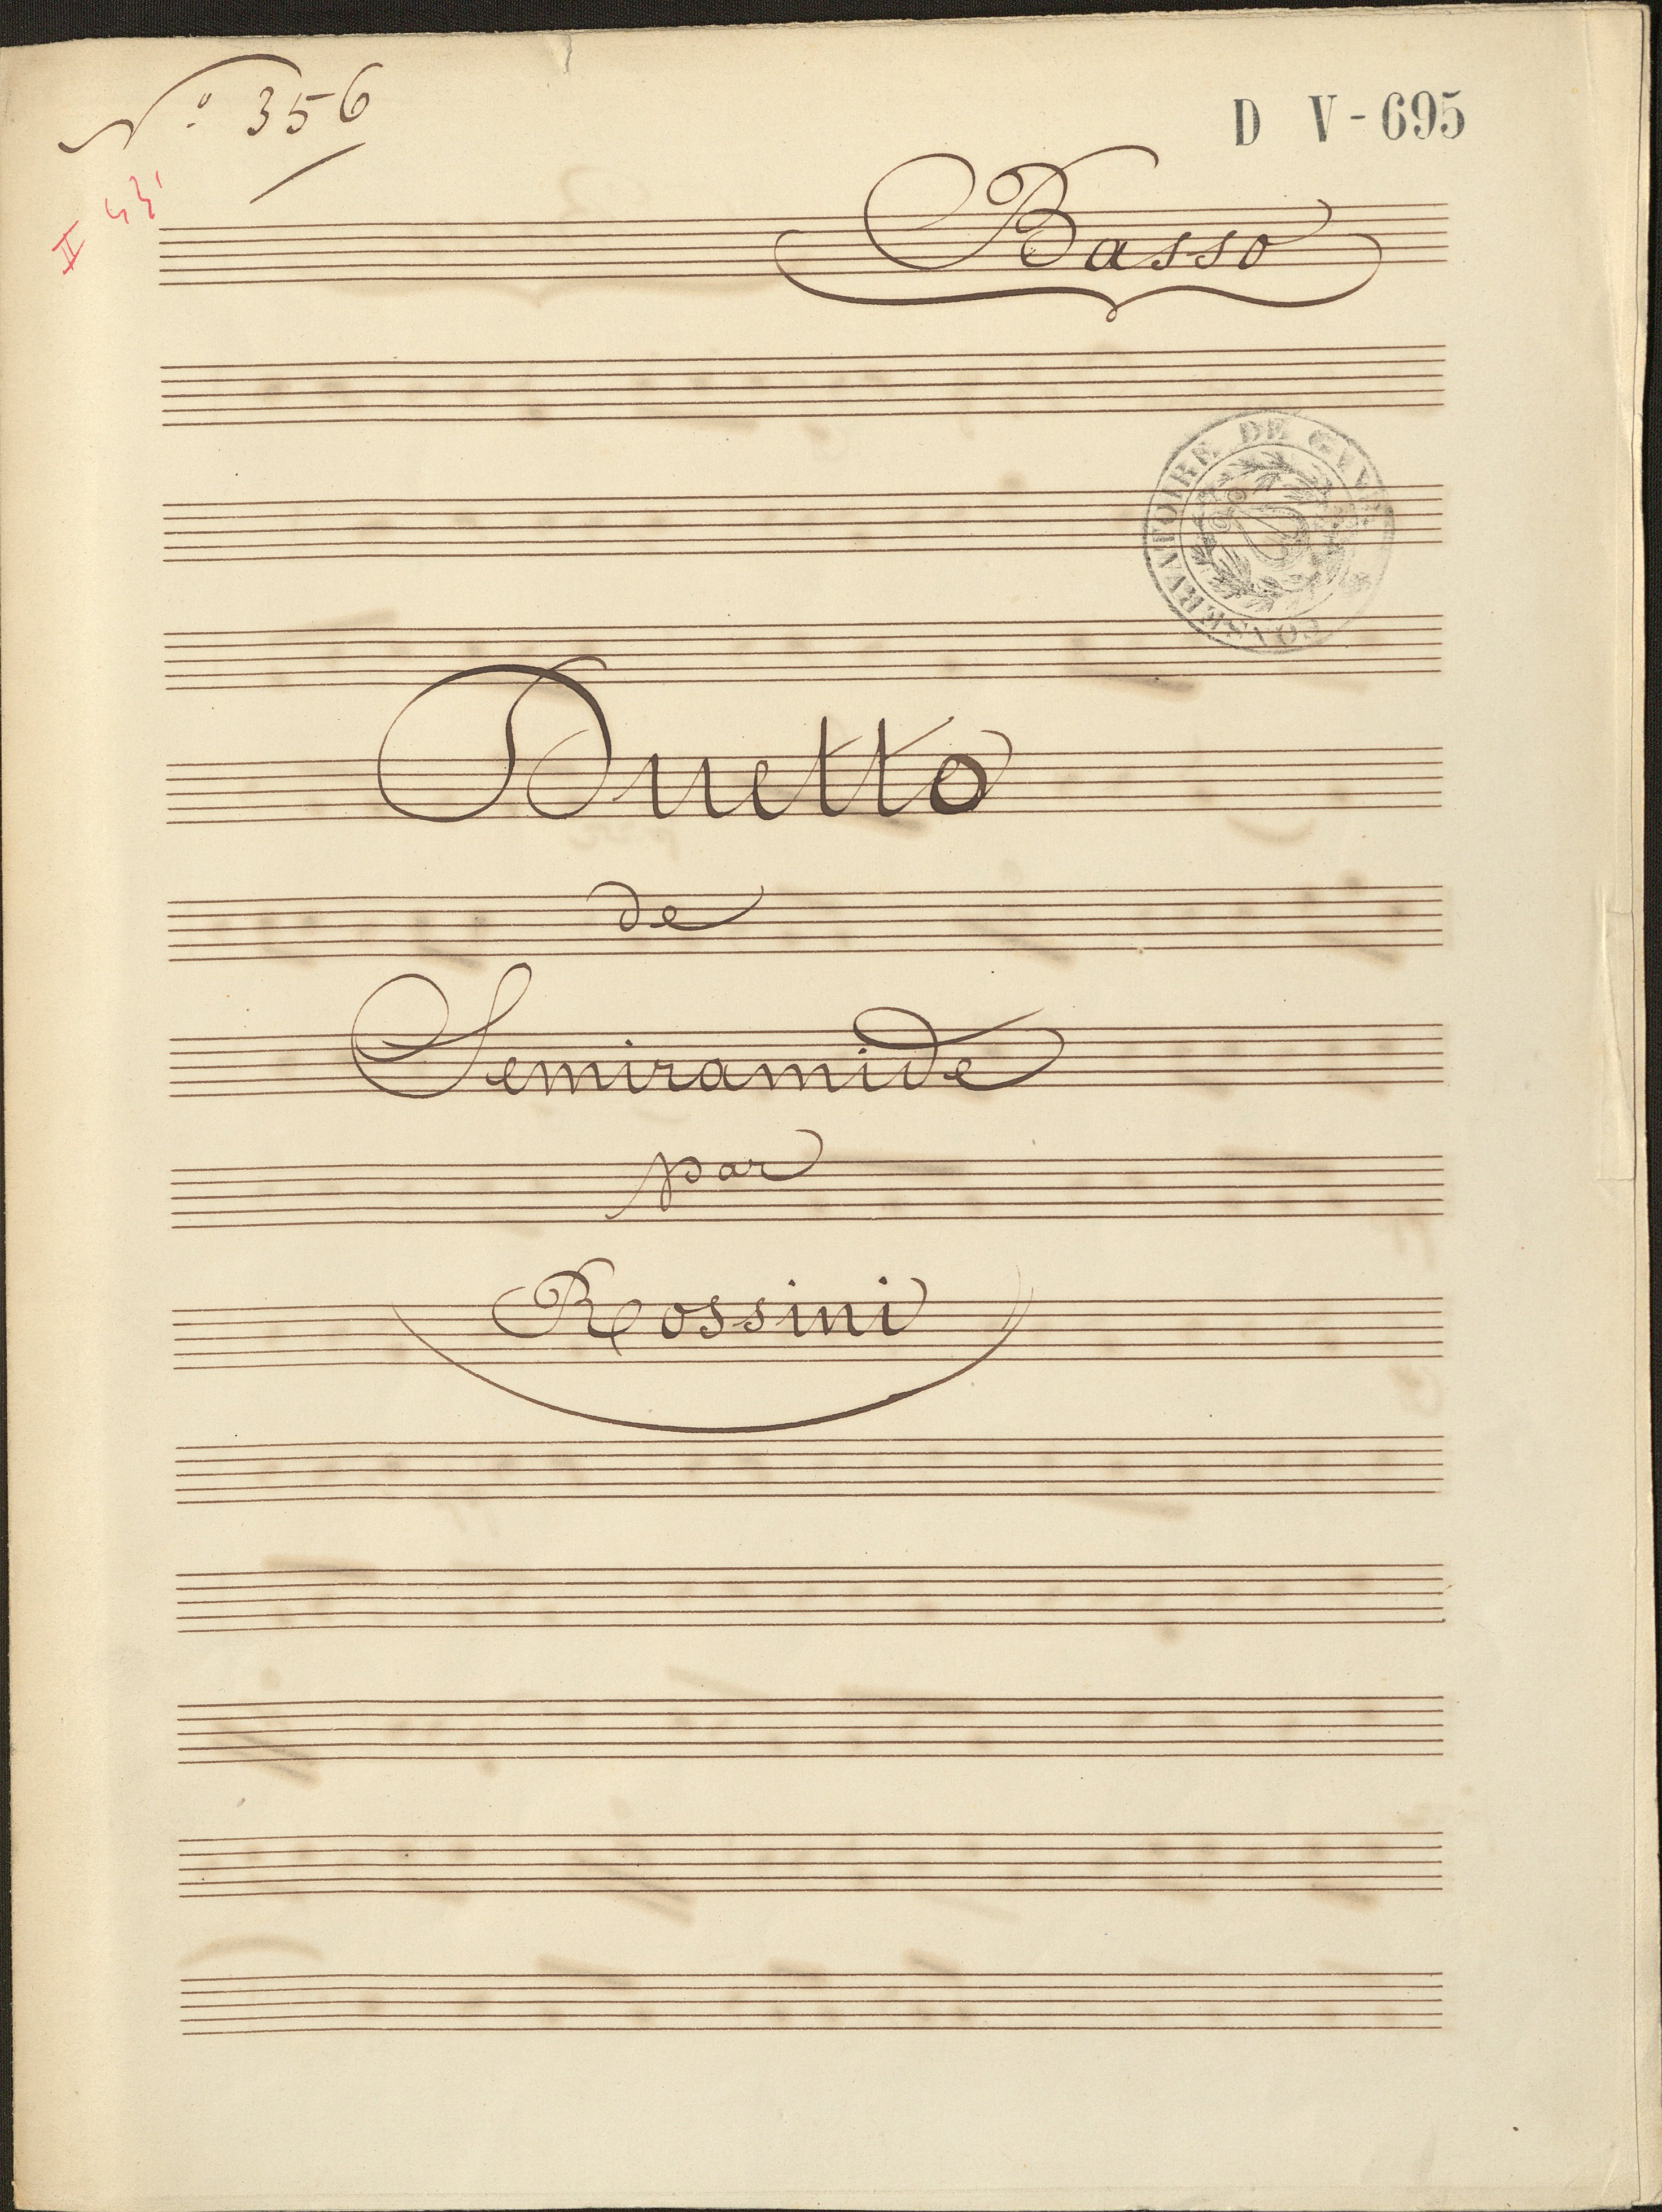 Nº 356
D V-695
II
Basso
CONSERVATOIRE DE GAND
Duetto
de
Semiramide
par
Rossini